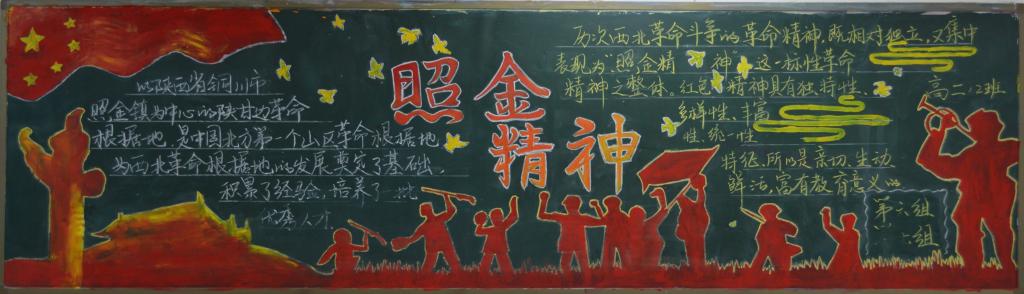 以陕西省铜川市
照金镇为中心的陕甘边革命
根据地，是中国北方第一个山区革命根据地
为西北革命根据地的发展奠定了基础，
积累了经验，培养了一批
优秀人才
照金
精神
历次西北革命斗争的革命精神既相对独立，又集中
表现为“照金精神”这一标性革命
精神之整体，红色精神具有独特性、
多样性、丰富
性、统一性
特征，所以是亲切、生动
鲜活，富有教育意义的
高二、12班
第六组
六组